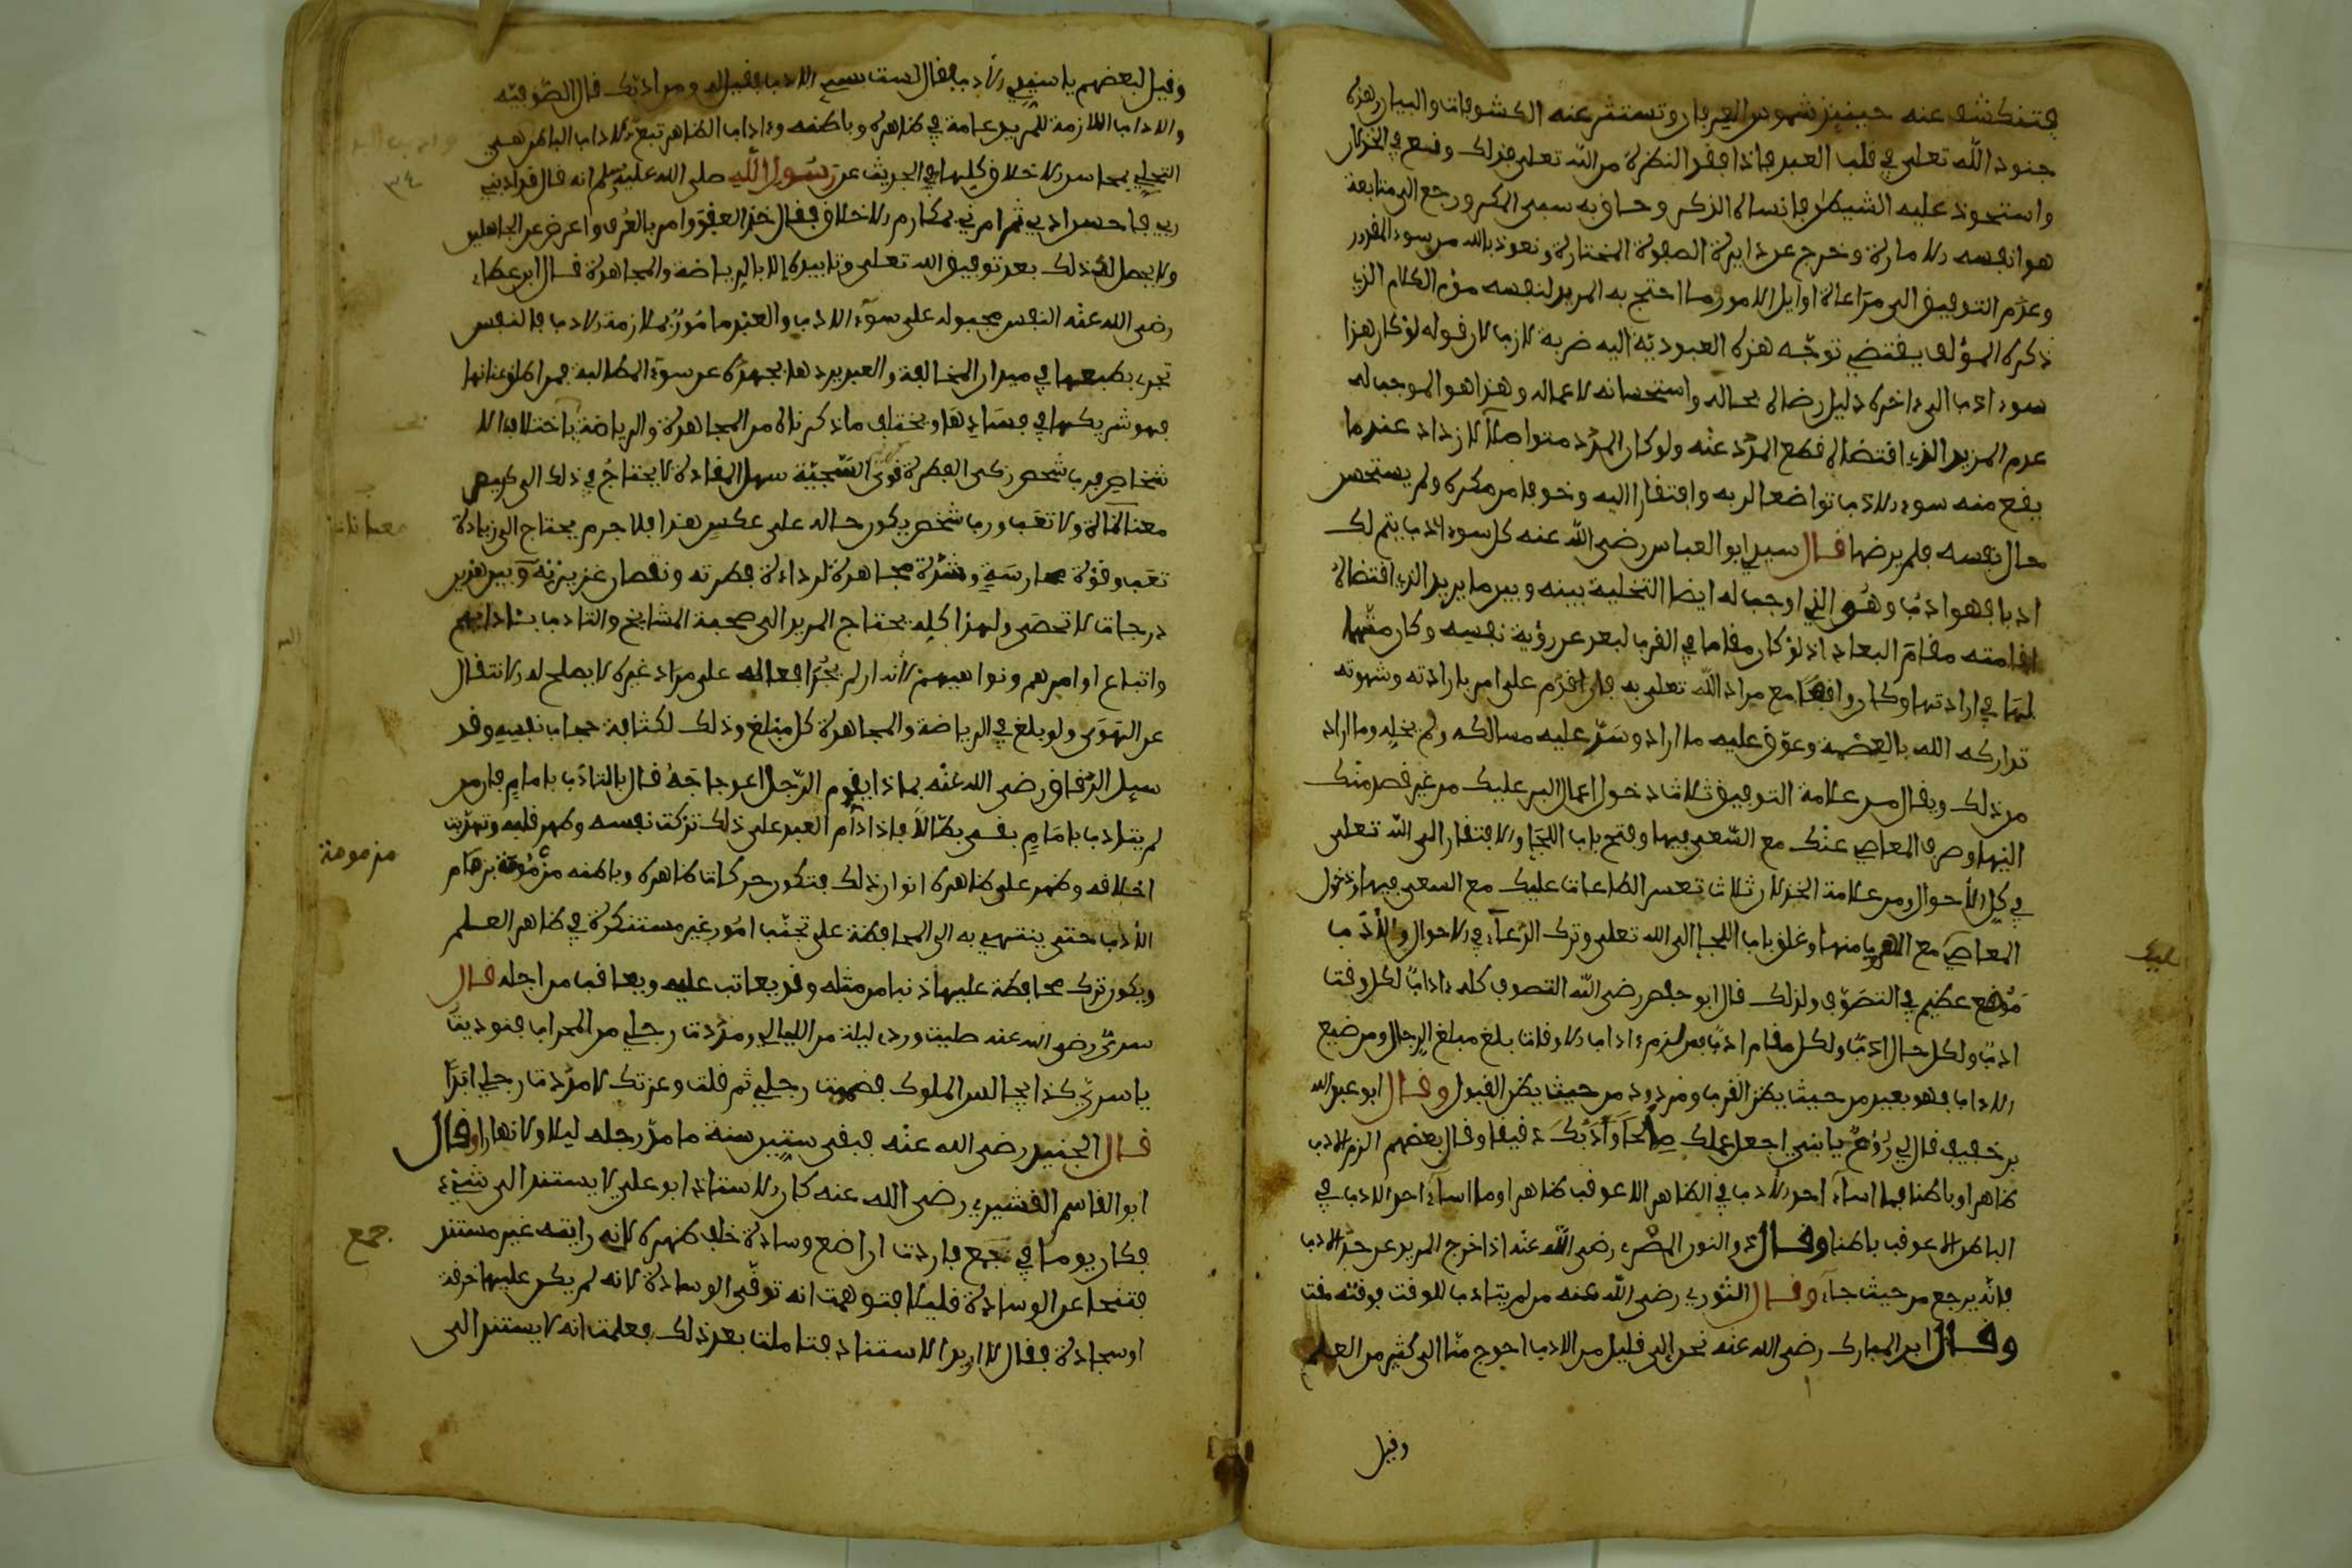 فتنكشف عنه حينئذ شموس العرفان وتستنثر عنه الكشوفات والبيان وهذه
جنود الله تعلى في قلب العبد فاذا فقد النظرة من الله تعلى فذلك وقع في الخذلان
واستحوذ عليه الشيطن فانساه الذكر وحاق به سيئ المكر ورجع الى متابعة
هوا نفسه الامارة وخرج عن دايرة الصفوة المختارة ونعوذ بالله من سوء المقدور
وعدم التوفيق الى مراعاة اوايل الامور وما احتج به المريد لنفسه من الكلام الذي
ذكره المؤلف يقتضي توجه هذه العبودية اليه ضربة لازب لان قوله لو كان هذا
سوء ادب الى ءاخره دليل رضاه بحاله واستحسانه لاعماله وهذا هو الموجب له
عدم المزيد الذي اقتضاه قطع المدد عنه ولو كان المدد متواصلا لازداد عندما
يقع منه سوء الادب تواضعا لربه وافتقارا اليه وخوفا من مكره ولم يستحسن
حال نفسه فلم يرضها قال سيدي ابو العباس رضي الله عنه كل سوء ادب يثمر لك
ادبا فهو ادب وهو الذي اوجب له ايضا التخلية بينه وبين ما يريد الذي اقتضاه
اقامته مقام البعاد اذ لو كان مقاما في القرب لبعد عن رؤية نفسه وكان متهما
لها في ارادتها وكان واقفا مع مراد الله تعلى به فان اقدم على امر بارادته وشهوته
تداركه الله بالعصمة وعوق عليه ما اراد وسد عليه مسالكه ولم يخله وما اراد
من ذلك ويقال من علامة التوفيق ثلاث دخول اعمال البر عليك من غير قصد منك
اليها وصرف المعاصي عنك مع السعي فيها وفتح باب اللجإ والافتقار الى الله تعلى
في كل الأحوال ومن علامة الخذلان ثلاث تعسر الطاعات عليك مع السعي فيها ودخول
المعاصي مع الهرب منها وغلق باب اللجإ الى الله تعلى وترك الدعاء في الاحوال والأدب
موقع عظيم في التصوف ولذلك قال ابو حفص رضي الله التصوف كله ءاداب لكل وقت
ادب ولكل حال ادب ولكل مقام ادب فمن لزم ءاداب الاوقات بلغ مبلغ الرجال ومن ضيع
الاداب فهو بعيد من حيث يظن القرب ومردود من حيث يظن القبول وقال ابو عبد الله
بن خفيف قال لي رويم يا بني اجعل عملك ملحا وأدبك دقيقا وقال بعضهم الزم الادب
ظاهرا وباطنا فما اساء احد الأدب في الظاهر الا عوقب ظاهرا وما اساء احد الادب في
الباطن الا عوقب باطنا وقال ذو النون المصري رضي الله عنه اذا خرج المريد عن حد الادب
فانه يرجع من حيث جاء وقال الثوري رضي الله عنه من لم يتادب للوقت فوقته مقت
وقال ابن المبارك رضي الله عنه نحن الى قليل من الادب احوج منا الى كثير من العلم
وقيل
وقيل لبعضهم يا سيئ الأدب فقال لست سيئ الادب فقيل له ومن ادبك قال الصوفية
والاداب اللازمة للمريد عامة في ظاهره وباطنه وءاداب الظاهر تبع لاداب الباطن هي
التحلي بمحاسن الاخلاق كلها في الحديث عن رسول الله صلى الله عليه وسلم انه قال قد ادبني
ربي فاحسن ادبي ثم امرني بمكارم الاخلاق فقال خذ العفو وامر بالعرف واعرض عن الجاهلين
ولا يحصل له ذلك بعد توفيق الله تعلى وتاييده الا بالرياضة والمجاهدة قال ابن عطاء
رضي الله عنه النفس مجبوله على سوء الادب والعبد مامور بملازمة الادب فالنفس
تجري بطبعها في ميدان المخالفة والعبد يردها بجهده عن سوء المطالبة فمن اطلق عنانها
فهو شريكها في فسادها ويختلف ما ذكرناه من المجاهدة والرياضة باختلاف الا
شخاص فرب شخص زكي الفطرة قوي السجية سهل المقادة لا يحتاج في ذلك الى كبير
معاناة ولا تعب ورب شخص يكون حاله على عكس هذا فلا جرم يحتاج الى زيادة
تعب وقوة ممارسة وشدة مجاهدة لرداءة فطرته ونقصان غريزته وبين هذين
درجات لا تحصى ولهذا كله يحتاج المريد الى صحبة المشايخ والتادب بئادابهم
واتباع اوامرهم ونواهيهم لأنه ان لم يجر افعاله على مراد غيره لا يصلح له الانتقال
عن الهوى ولو بلغ في الرياضة والمجاهدة كل مبلغ وذلك لكثافة حجاب نفسه وقد
سيل الدقاق رضي الله عنه بماذا يقوم الرجل اعوجاجه قال بالتادب بامام فان من
لم يتادب بامام بقي بطالا فاذا دام العبد على ذلك تزكت نفسه وطهر قلبه وتهذبت
اخلاقه وظهر على ظاهره انوار ذلك فتكون حركات ظاهره وباطنه مزمومة بزمام
الأدب حتى ينتهي به الى المحافظة على تجنب امور غير مستنكرة في ظاهر العلم
ويكون ترك محافظة عليها ذنبا من مثله وقد يعاتب عليه ويعاقب من اجله قال
سري رضي الله عنه صليت وردي ليلة من الليالي ومددت رجلي من المحراب فنوديت
يا سري كذا يجالس الملوك فضممت رجلي ثم قلت وعزتك لا مددت رجلي ابدا
قال الجنيد رضي الله عنه فبقي ستين سنة ما مد رجله ليلا ولا نهارا وقال
ابو القاسم القشيري رضي الله عنه كان الاستاذ ابو علي لا يستند الى شيء
فكان يوما في مجمع فاردت ان اضع وسادة خلف ظهره لانه رايته غير مستند
فتنحا عن الوسادة قليلا فتوهمت انه توقى الوسادة لانه لم يكن عليها خرقة
او سجادة فقال لا اريد الاستناد فتاملت بعد ذلك فعلمت انه لا يستند الى
٣٤
معاناة
مزمومة
جمع